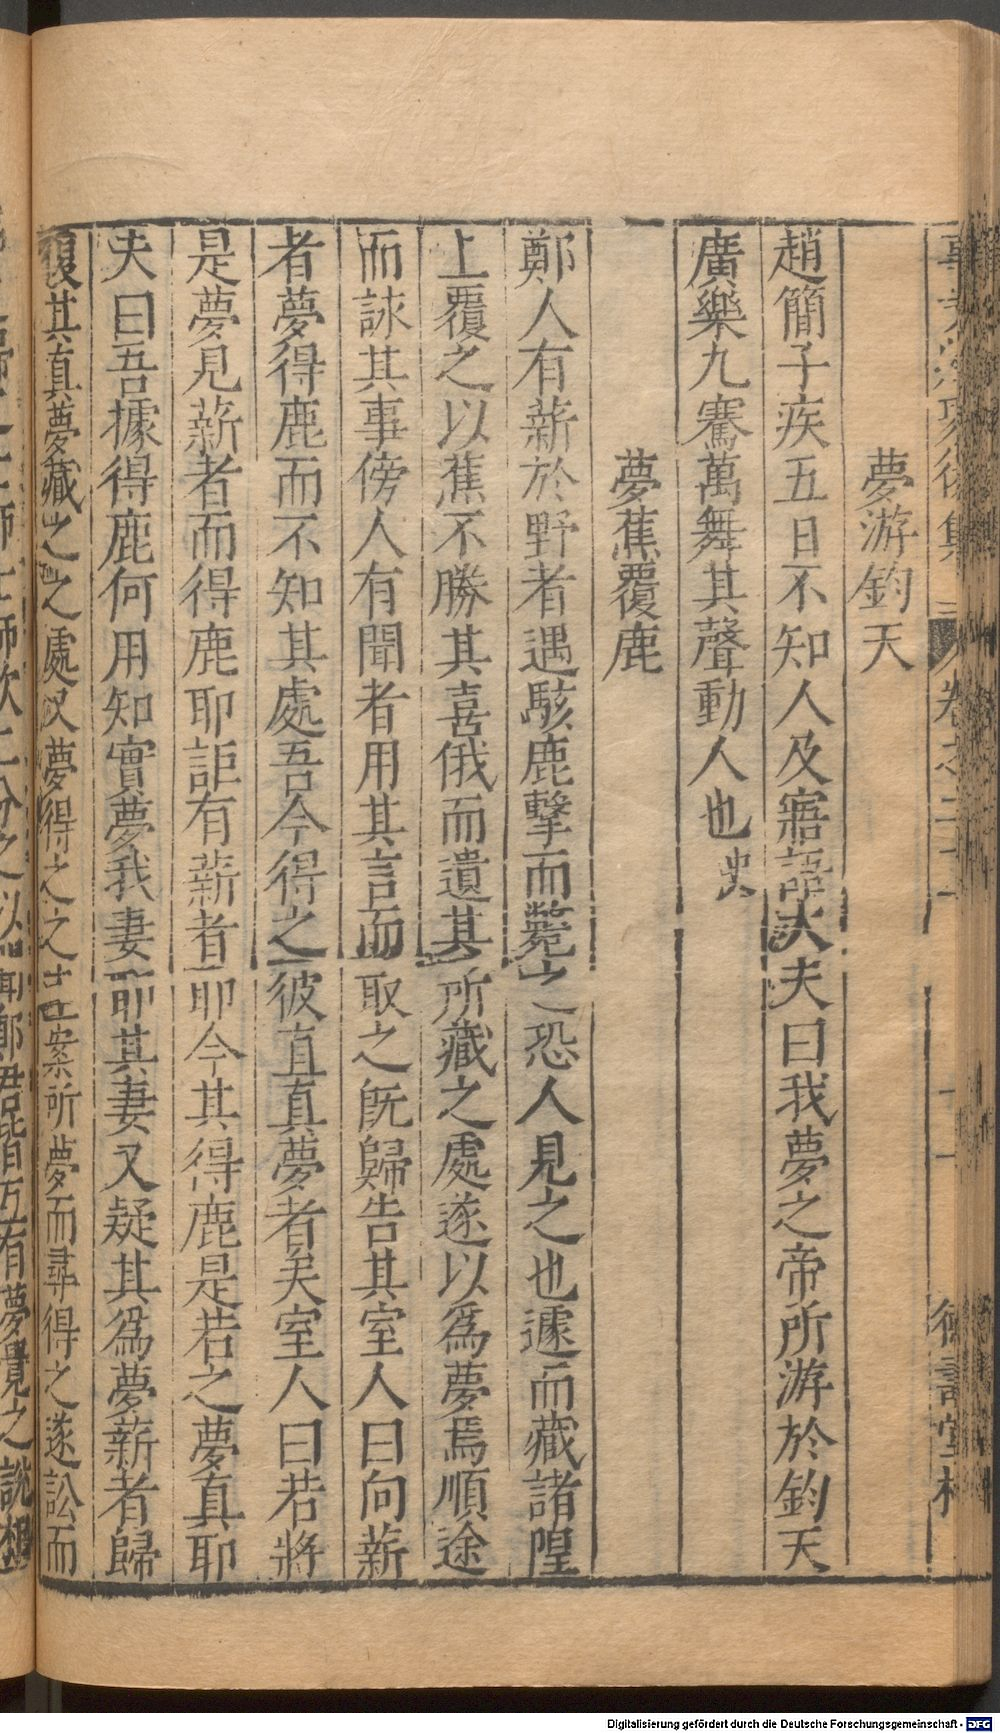 夢游鈞天
趙簡子疾五日不知人及寤語大夫曰我夢之帝所游於鈞天
廣樂九奏萬舞其聲動人也史
夢蕉覆鹿
鄭人有薪於野者遇駭鹿擊而斃之恐人見之也遽而藏諸隍
上覆之以蕉不勝其喜俄而遺其所藏之處遂以爲夢焉順途
而詠其事傍人有聞者用其言而取之旣歸告其室人曰向薪
者夢得鹿而不知其處吾今得之彼直真夢者矣室人曰若將
是夢見薪者而得鹿耶詎有薪者耶今其得鹿是若之夢真耶
夫曰吾據得鹿何用知實夢我妻耶其妻又疑其爲夢薪者歸
其真夢藏之之處又夢得之之主案所夢而尋得之遂訟而
德壽堂梓
Digitalisierung gefördert durch die Deutsche Forschungsgemeinschaft - DFG